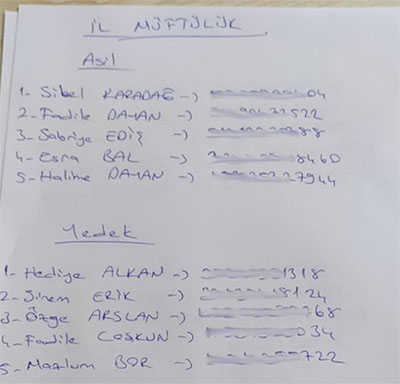 İL MÜFTÜLÜK
Asil
1- Sibel KARADAĞ -> 04
2- Fadile DAMAN -> 71522
3- Sabriye EDİŞ -> 88
4- Esra BAL -> 8460
5- Halime DAMAN -> 7944
Yedek
1- Hediye ALKAN -> 1318
2- Sinem ERİK -> 8124
3- Özge ARSLAN -> 68
4- Fadile COŞKUN -> 034
5- Mazlum BOR -> 722